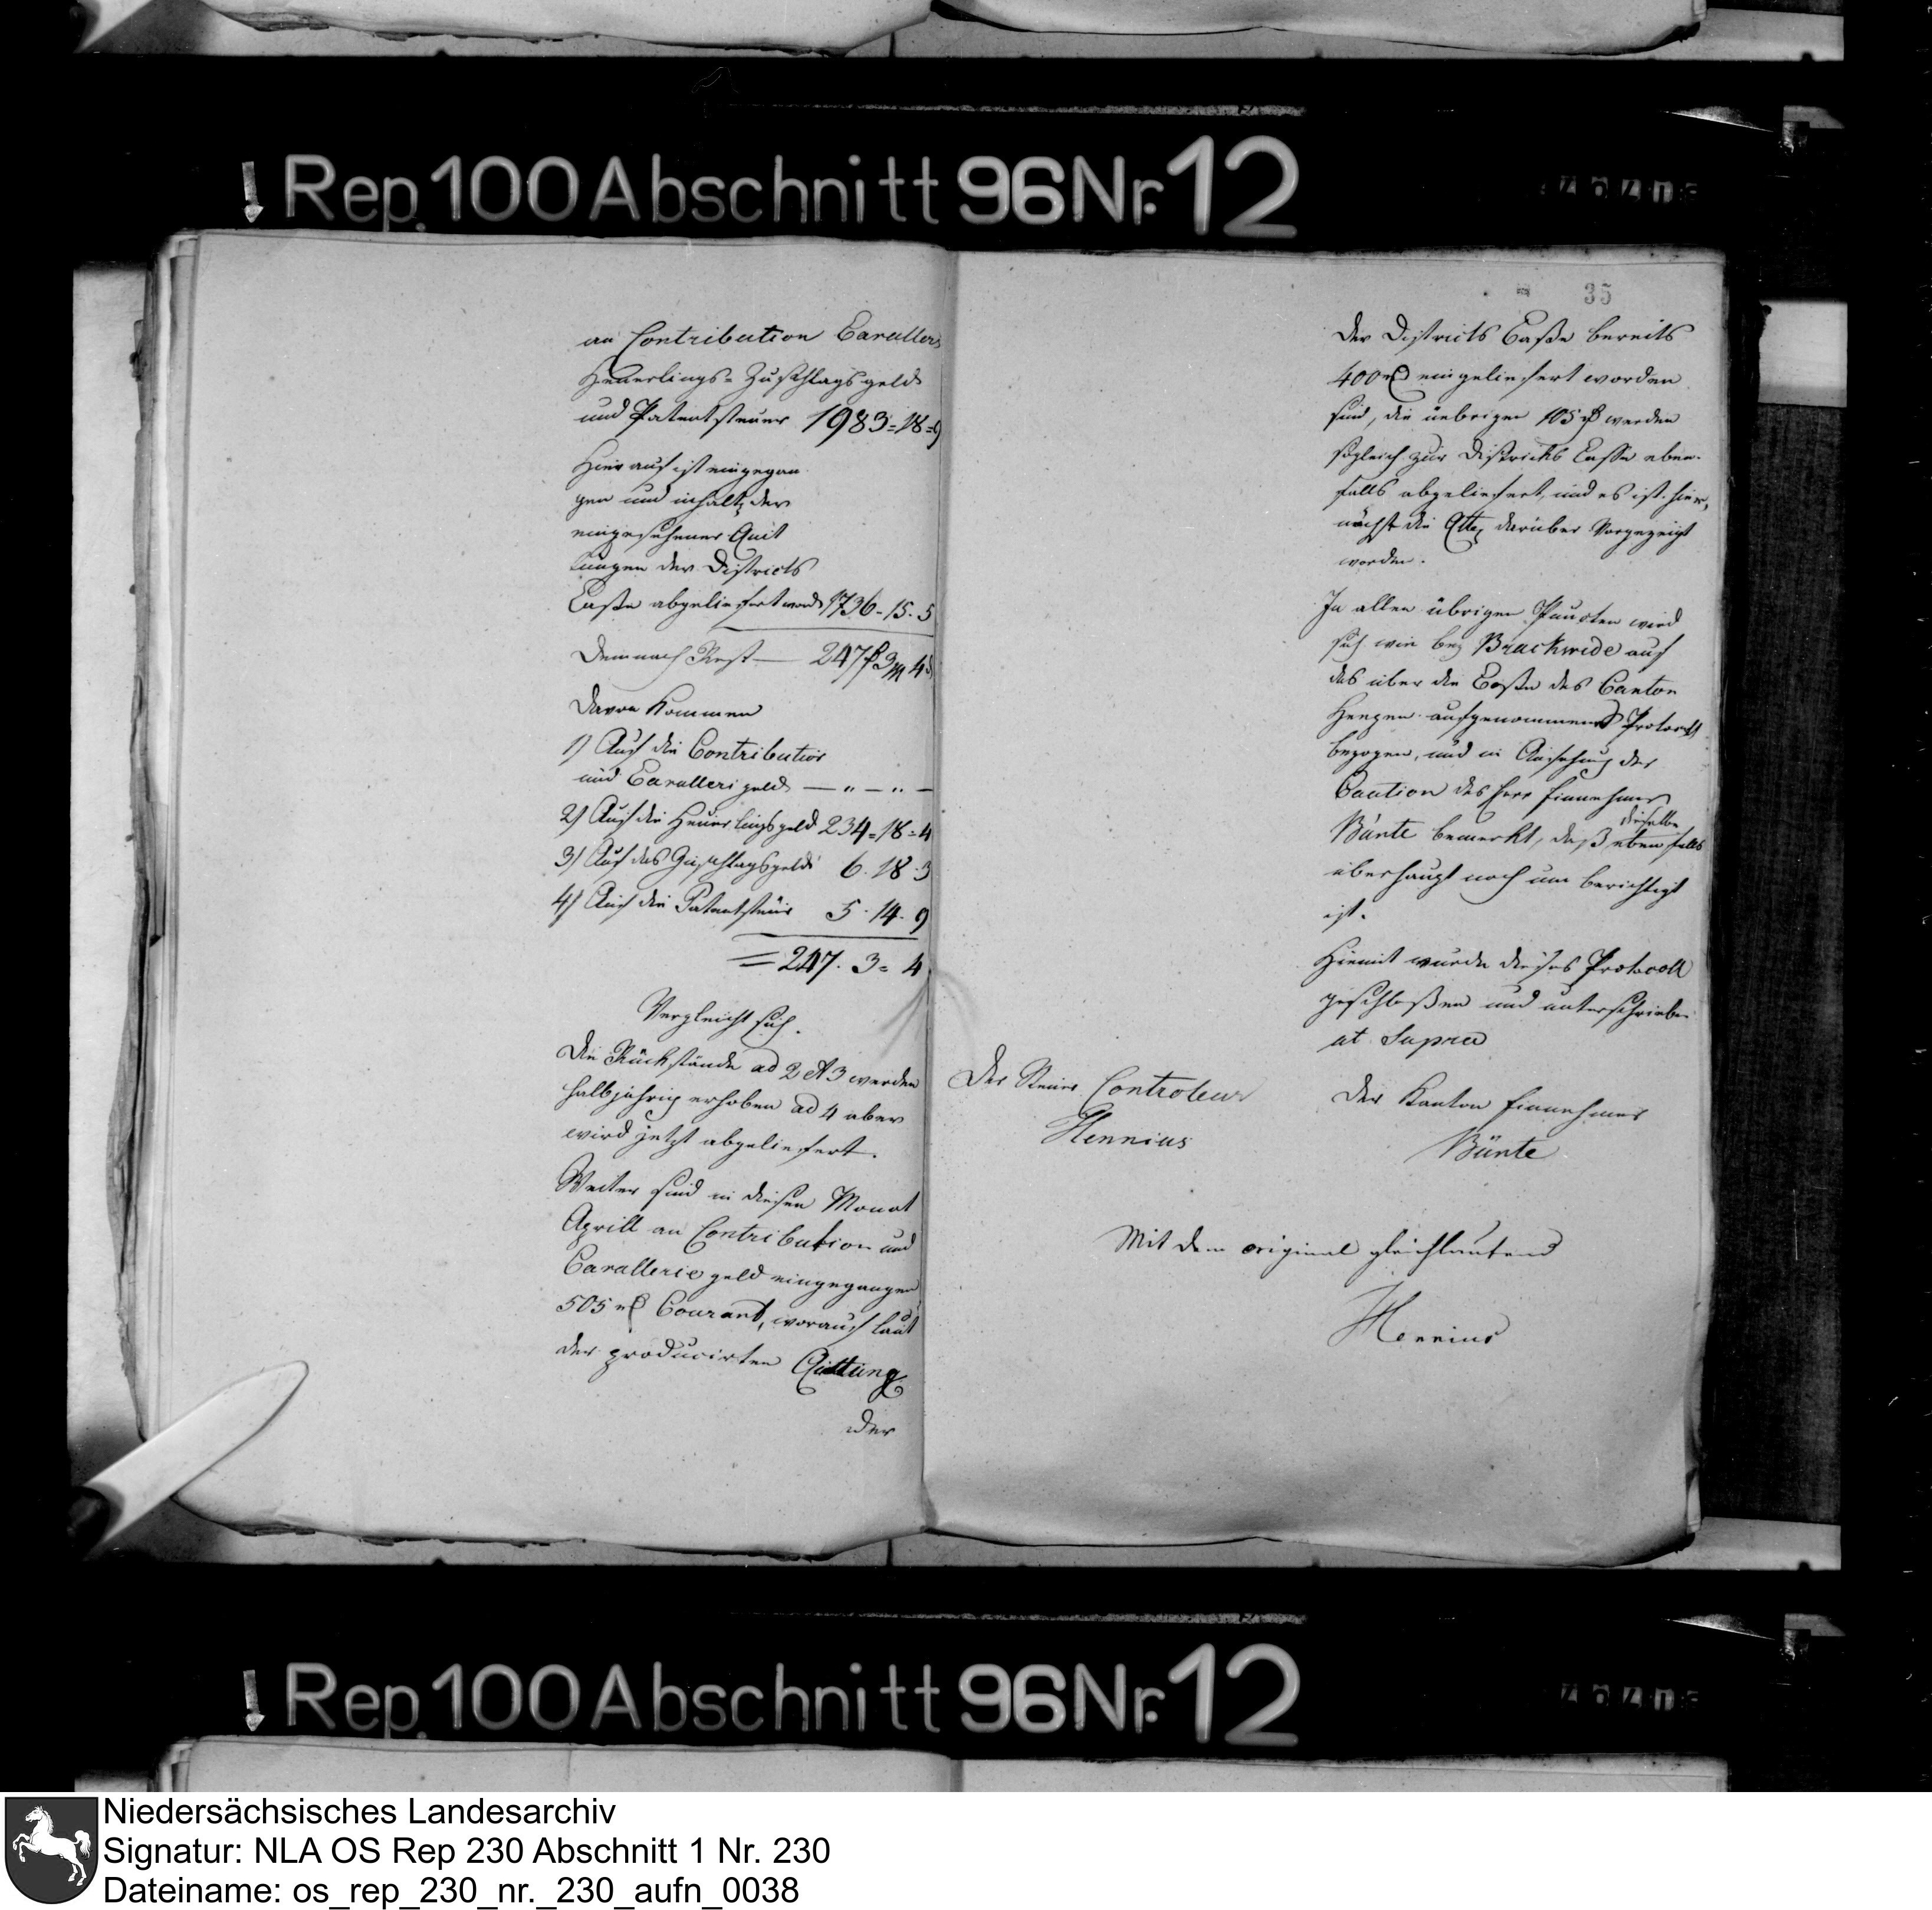 Rep. 100 Abschnitt 96 Nr. 12
an Contribution Cavallerie
Heuerlings= Zuschlagsgeld
und Patentsteuer 1983=18=9
Hierauf ist eingegan
gen und inhalts der
eingesehener Quit
tungen der Districts
Casse abgeliefert word 1736-15-5
Demnach Rest — 247 3 4
Davon Kommen
1) Auf die Contribution
und Cavallerigeld — " — " —
2) Auf die Heuerlingsgeld 234=18=4
3) Auf das Zuschlagsgeld 6.18.3
4) Auf die Patentsteuer 5.14.9
= 247. 3= 4
Vergleicht sich.
Die Rückstände ad 2 et 3 werden
halbjährig erhoben ad 4 aber
wird jetzt abgeliefert.
Weiter sind in diesen Monat
Aprill an Contribution und
Cavallerie geld eingegangen
505 rt Courant, worauf laut
der producirten Quittung
der
35
der Districts Caße bereits
400 rt eingeliefert worden
sind, die übrigen 105 rt werden
sogleich zur Districts Casse eben-
falls abgeliefert, und es ist hier,
nächst die darüber Vorgezeigt
worden.
In allen übrigen Puncten wird
sich wie bey Brackwede auf
das über die Caße des Canton
Heepen aufgenommene Protocoll
bezogen, und in Ansehung der
Caution des Herr Einnehmer
Bünte bemerkt, daß dieselbe ebenfalls
überhaupt noch un berichtigt
ist.
Hiemit wurde dieses Protocoll
geschloßen und unterschrieben
ut Supra
Der Steuer Controleur
Hennius
Der Kanton Einnehmer
Bünte
Mit dem original gleichlautend
Hennius
Rep. 100 Abschnitt 96 Nr. 12
Niedersächsisches Landesarchiv
Signatur: NLA OS Rep 230 Abschnitt 1 Nr. 230
Dateiname: os_rep_230_nr._230_aufn_0038